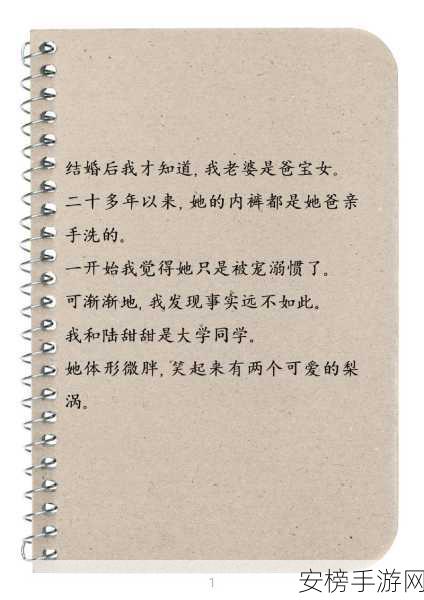 结婚后我才知道,我老婆是爸宝女。
二十多年以来,她的内裤都是她爸亲
手洗的。
一开始我觉得她只是被宠溺惯了。
可渐渐地,我发现事实远不如此。
我和陆甜甜是大学同学。
她体形微胖,笑起来有两个可爱的梨
涡。
1
安榜手游网